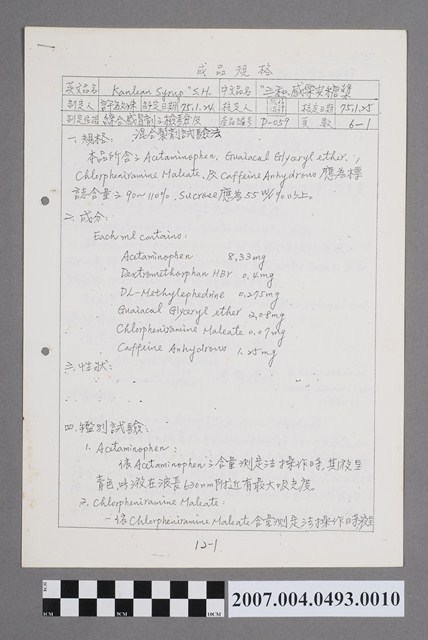 成品規格
英文品名 Kanlean Syrup "S.H. 中文品名 "三和"感冒安糖漿
制定人 制定日期 75.1.24. 核定人 核定日期 75.1.25
制定依據 綜合感冒劑之檢驗及混合藥劑試驗法 產品編號 D-059 頁數 6-1
一.規格:
本品所含之Acetaminophen, Guaiacal Glyceryl ether,
Chlorpheniramine Maleate, 及 Caffeine Anhydrous, 應為標
誌含量之90~110%. Sucrose應為55 W/V%以上。
二.成分:
Each ml contains:
Acetaminophen 8.33mg
Dextromethorphan HBr 0.4mg
DL-Methylephedrine 0.275mg
Guaiacal Glyceryl ether 2.08mg
Chlorpheniramine Maleate 0.07mg
Caffeine Anhydrous 1.25mg
三.性狀:
四.鑑別試驗:
1. Acetaminophen:
依Acetaminophen之含量測定法操作時,其液呈
青色,此液在波長630nm附近有最大吸光度。
2. Chlorpheniramine Maleate:
依Chlorpheniramine Maleate含量測定法操作時液呈
12-1
2007.004.0493.0010